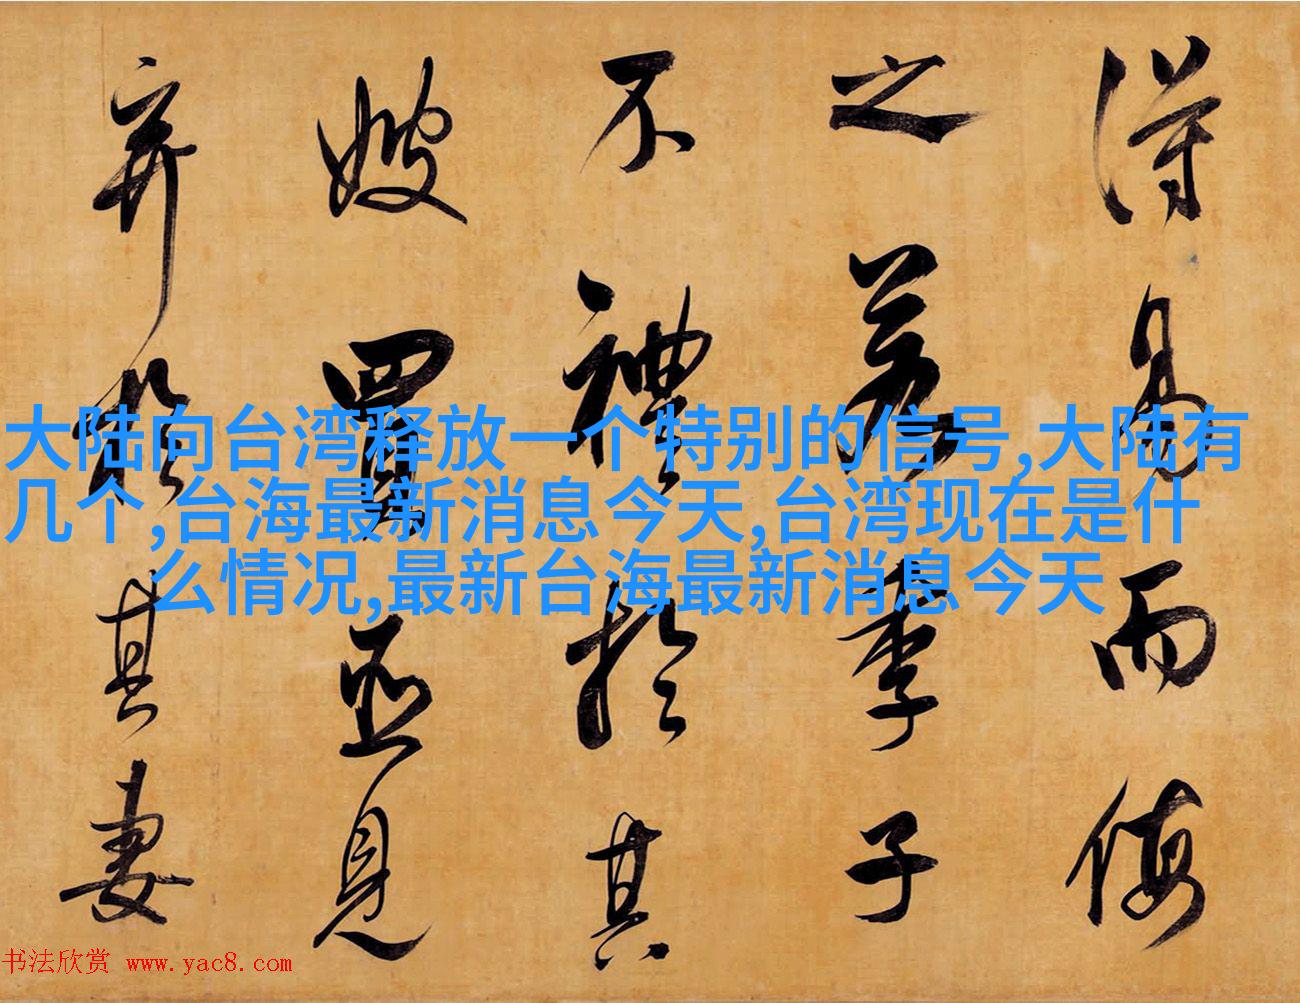 得易而侮
之若季子
不禮於其
嫂買臣見
弃於其妻
大陆向台湾释放一个特别的信号,大陆有
几个,台海最新消息今天,台湾现在是什
么情况,最新台海最新消息今天
书法欣赏 www.yac8.com